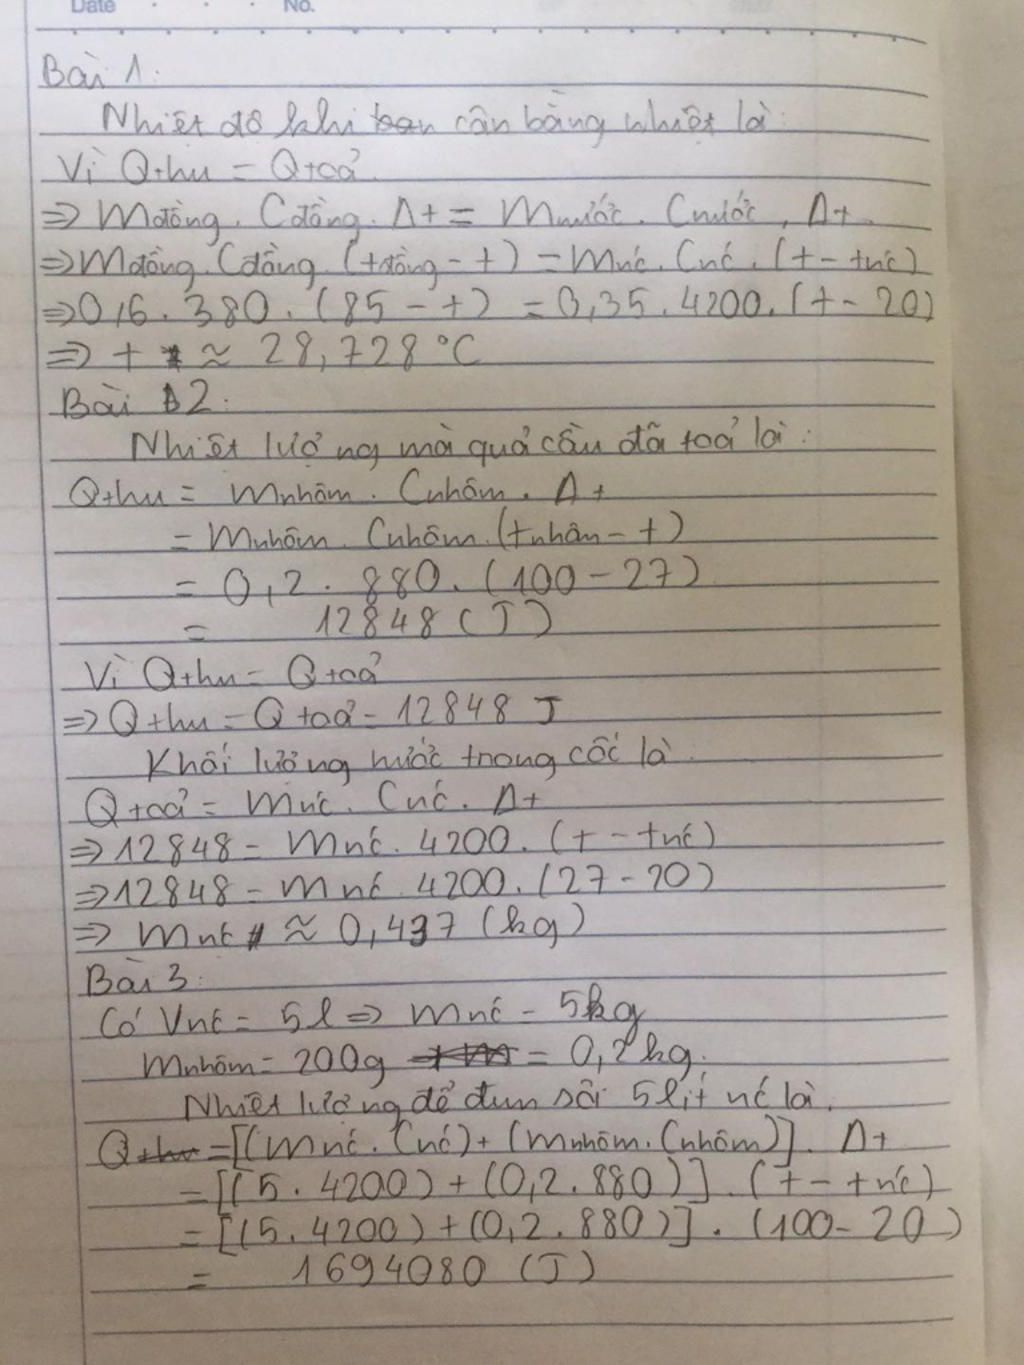 Date No.
Bài 1:
Nhiệt độ khi cân bằng nhiệt là:
Vì Qthu = Qtoả
=> Mđồng. Cđồng. Δt = Mnước. Cnước. Δt
=> Mđồng. Cđồng. (tđồng - t) = Mnć. Cnć. (t - tnć)
=> 0,6. 380. (85 - t) = 0,35. 4200. (t - 20)
=> t ≈ 28,728 °C
Bài 2:
Nhiệt lượng mà quả cầu đã toả là:
Qthu = Mnhôm. Cnhôm. Δt
= Mnhôm. Cnhôm. (tnhân - t)
= 0,2. 880. (100 - 27)
= 12848 (J)
Vì Qthu = Qtoả
=> Qthu = Qtoả = 12848 J
Khối lượng nước trong cốc là
Qtoả = Mnć. Cnć. Δt
=> 12848 = Mnć. 4200. (t - tnć)
=> 12848 = Mnć. 4200. (27 - 20)
=> Mnć ≈ 0,437 (kg)
Bài 3:
Có Vnć = 5l => Mnć = 5kg
Mnhôm = 200g = 0,2kg.
Nhiệt lượng để đun sôi 5 lít nć là.
Q = [(Mnć. Cnć) + (Mnhôm. Cnhôm)]. Δt
= [(5. 4200) + (0,2. 880)]. (t - tnć)
= [(5. 4200) + (0,2. 880)]. (100 - 20)
= 1694080 (J)